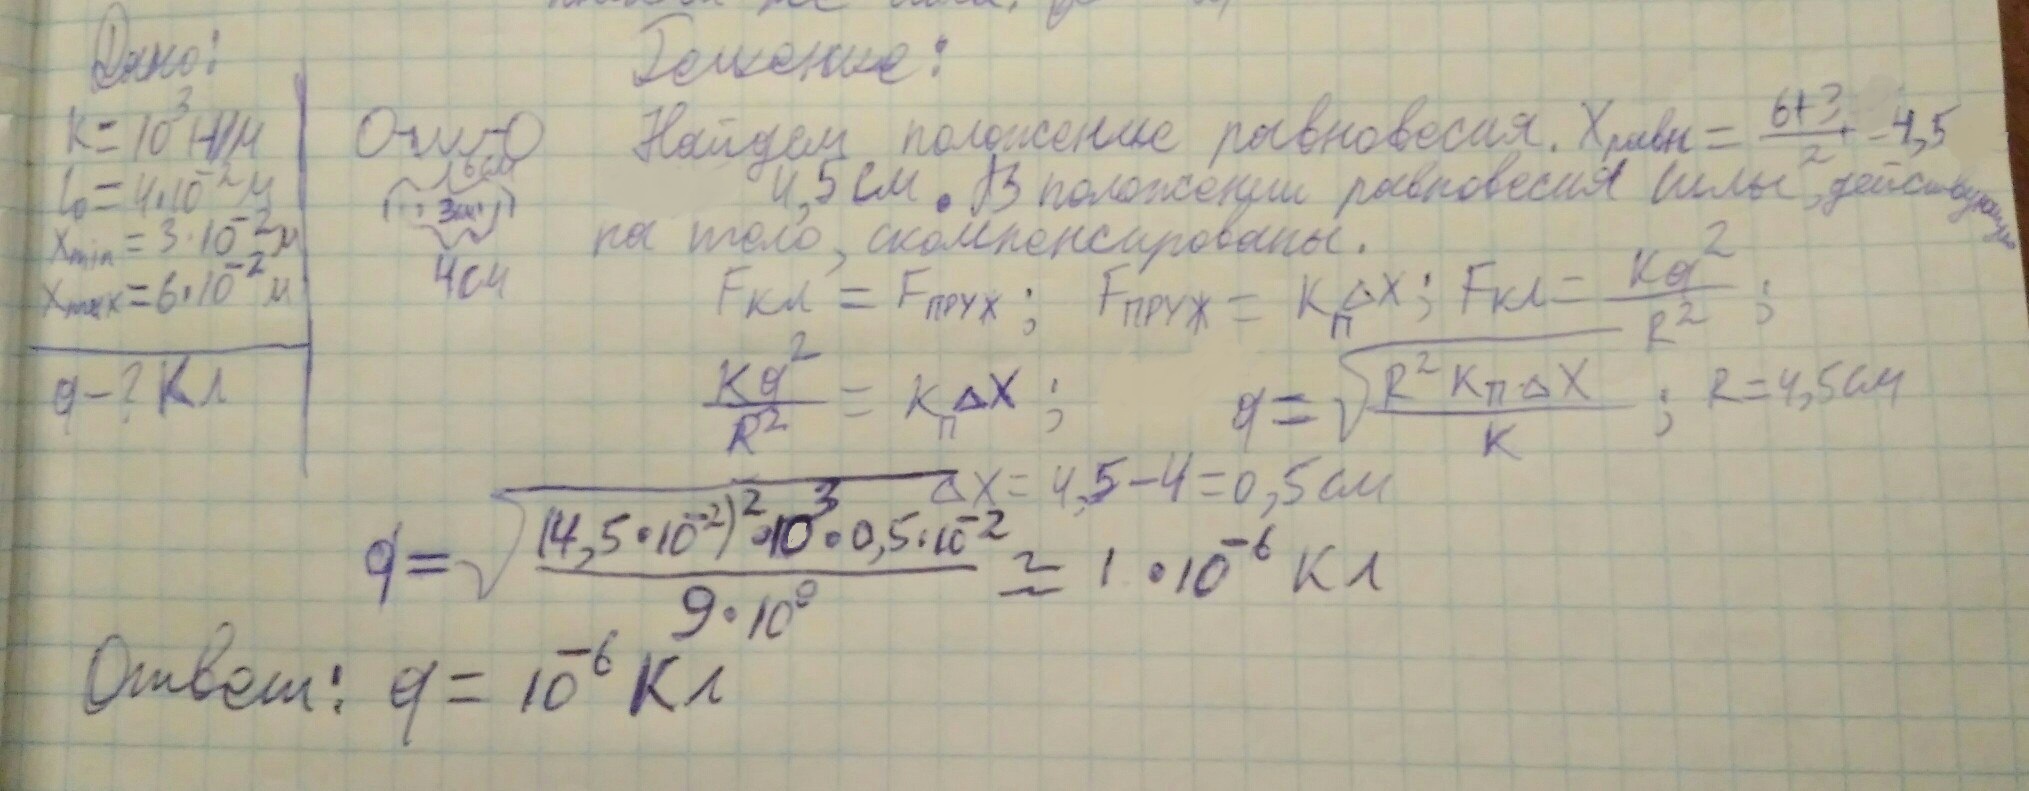 Дано:
Решение:
K = 10³ Н/м
l₀ = 4·10⁻² м
Xmin = 3·10⁻² м
Xmax = 6·10⁻² м
q - ? Кл
6см
3см
4см
Найдем положение равновесия. Xравн = (6+3)/2 = 4,5
4,5 см. В положении равновесия силы, действующие
на тело, скомпенсированы.
Fкл = Fпруж; Fпруж = KпΔX; Fкл = Kq²/R²;
Kq²/R² = KпΔX; q = √(R²KпΔX/K); R = 4,5см
ΔX = 4,5 - 4 = 0,5 см
q = √((4,5·10⁻²)²·10³·0,5·10⁻²/9·10⁹) ≃ 1·10⁻⁶ Кл
Ответ: q = 10⁻⁶ Кл